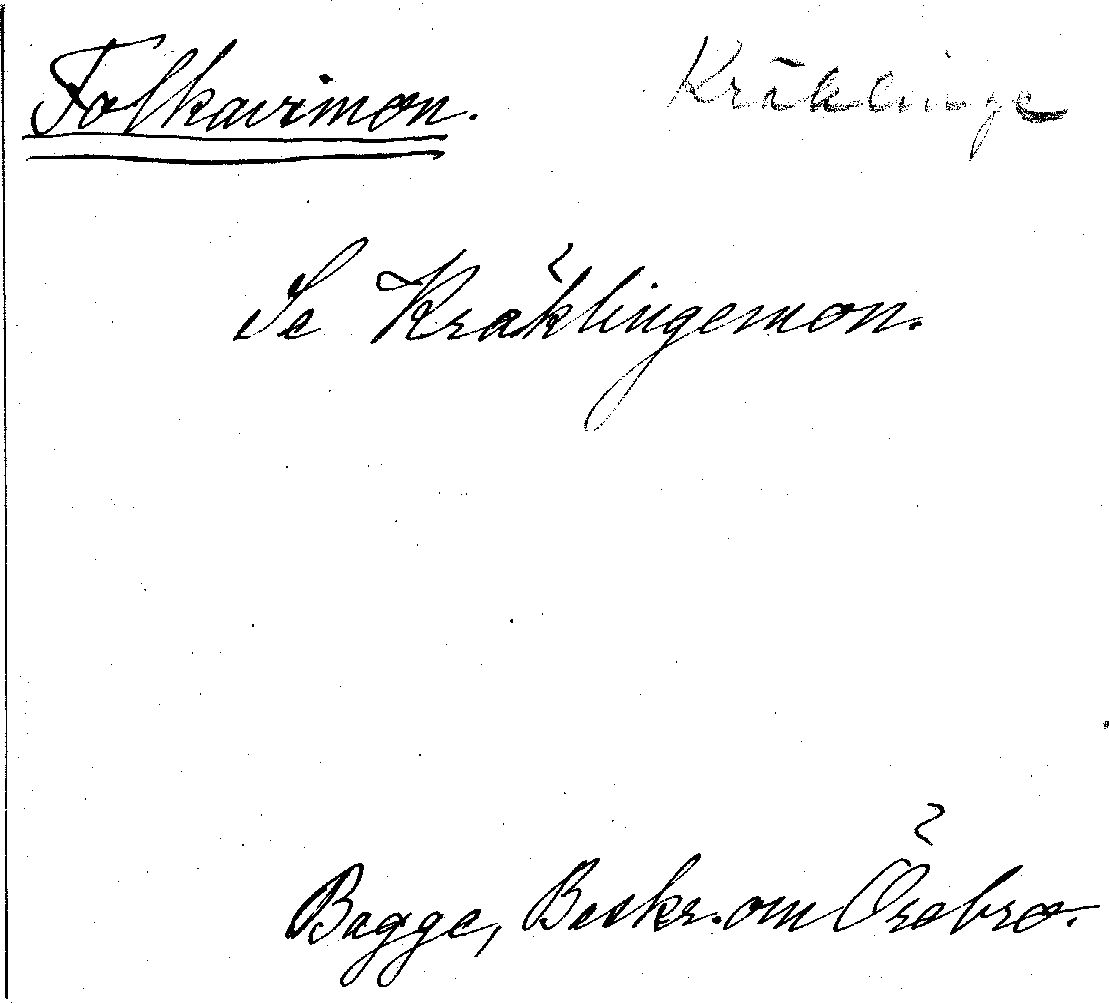 Folkavimon. Kräklinge
Se Kräklingemon.
Bagge, Beskr. om Örebro.